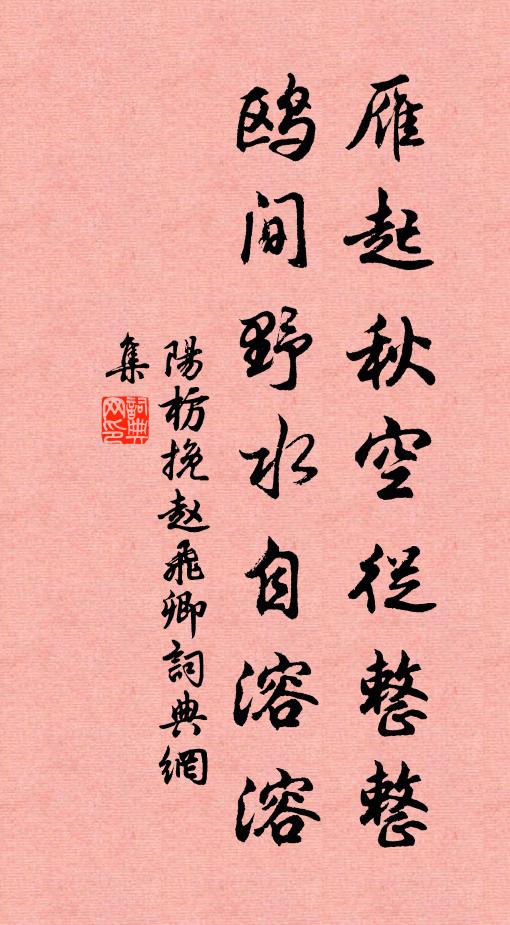 雁起秋空從整整
鸥间野水自溶溶
陽枋挽赵飛卿詞典網
集
詞典網印